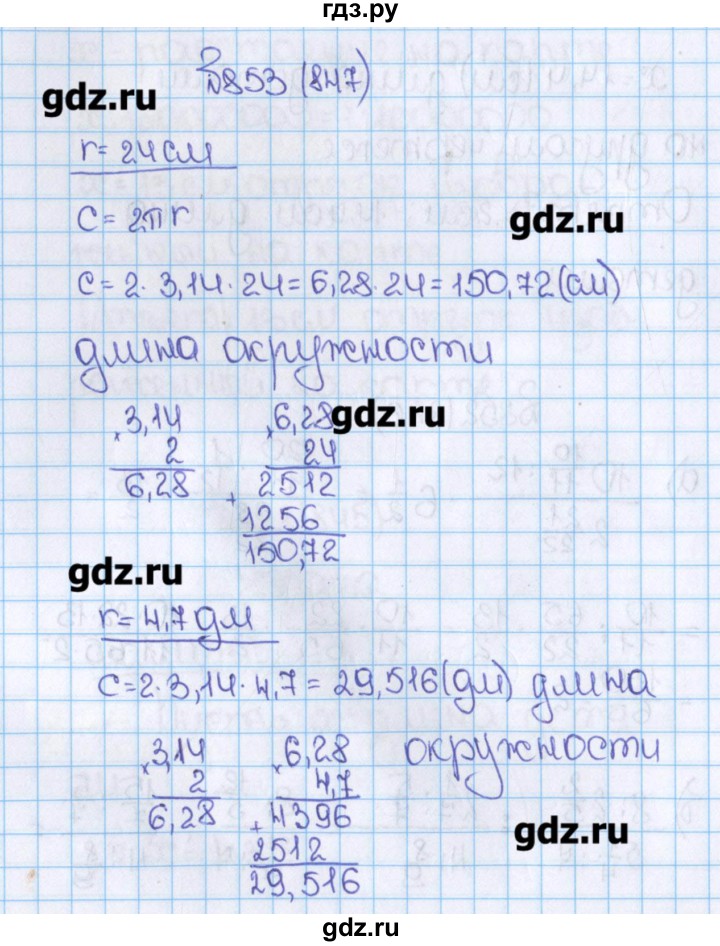 гдз.ру
№853 (847)
gdz.ru
r = 24 см
C = 2πr
gdz.ru
C = 2 · 3,14 · 24 = 6,28 · 24 = 150,72 (см)
длина окружности
× 3,14 × 6,28
gdz.ru
2 24
6,28 + 2512
1256
150,72
gdz.ru
r = 4,7 дм
C = 2 · 3,14 · 4,7 = 29,516 (дм) длина
окружности
× 3,14 × 6,28
2 4,7
6,28 + 4396
gdz.ru
2512
29,516
gdz.ru